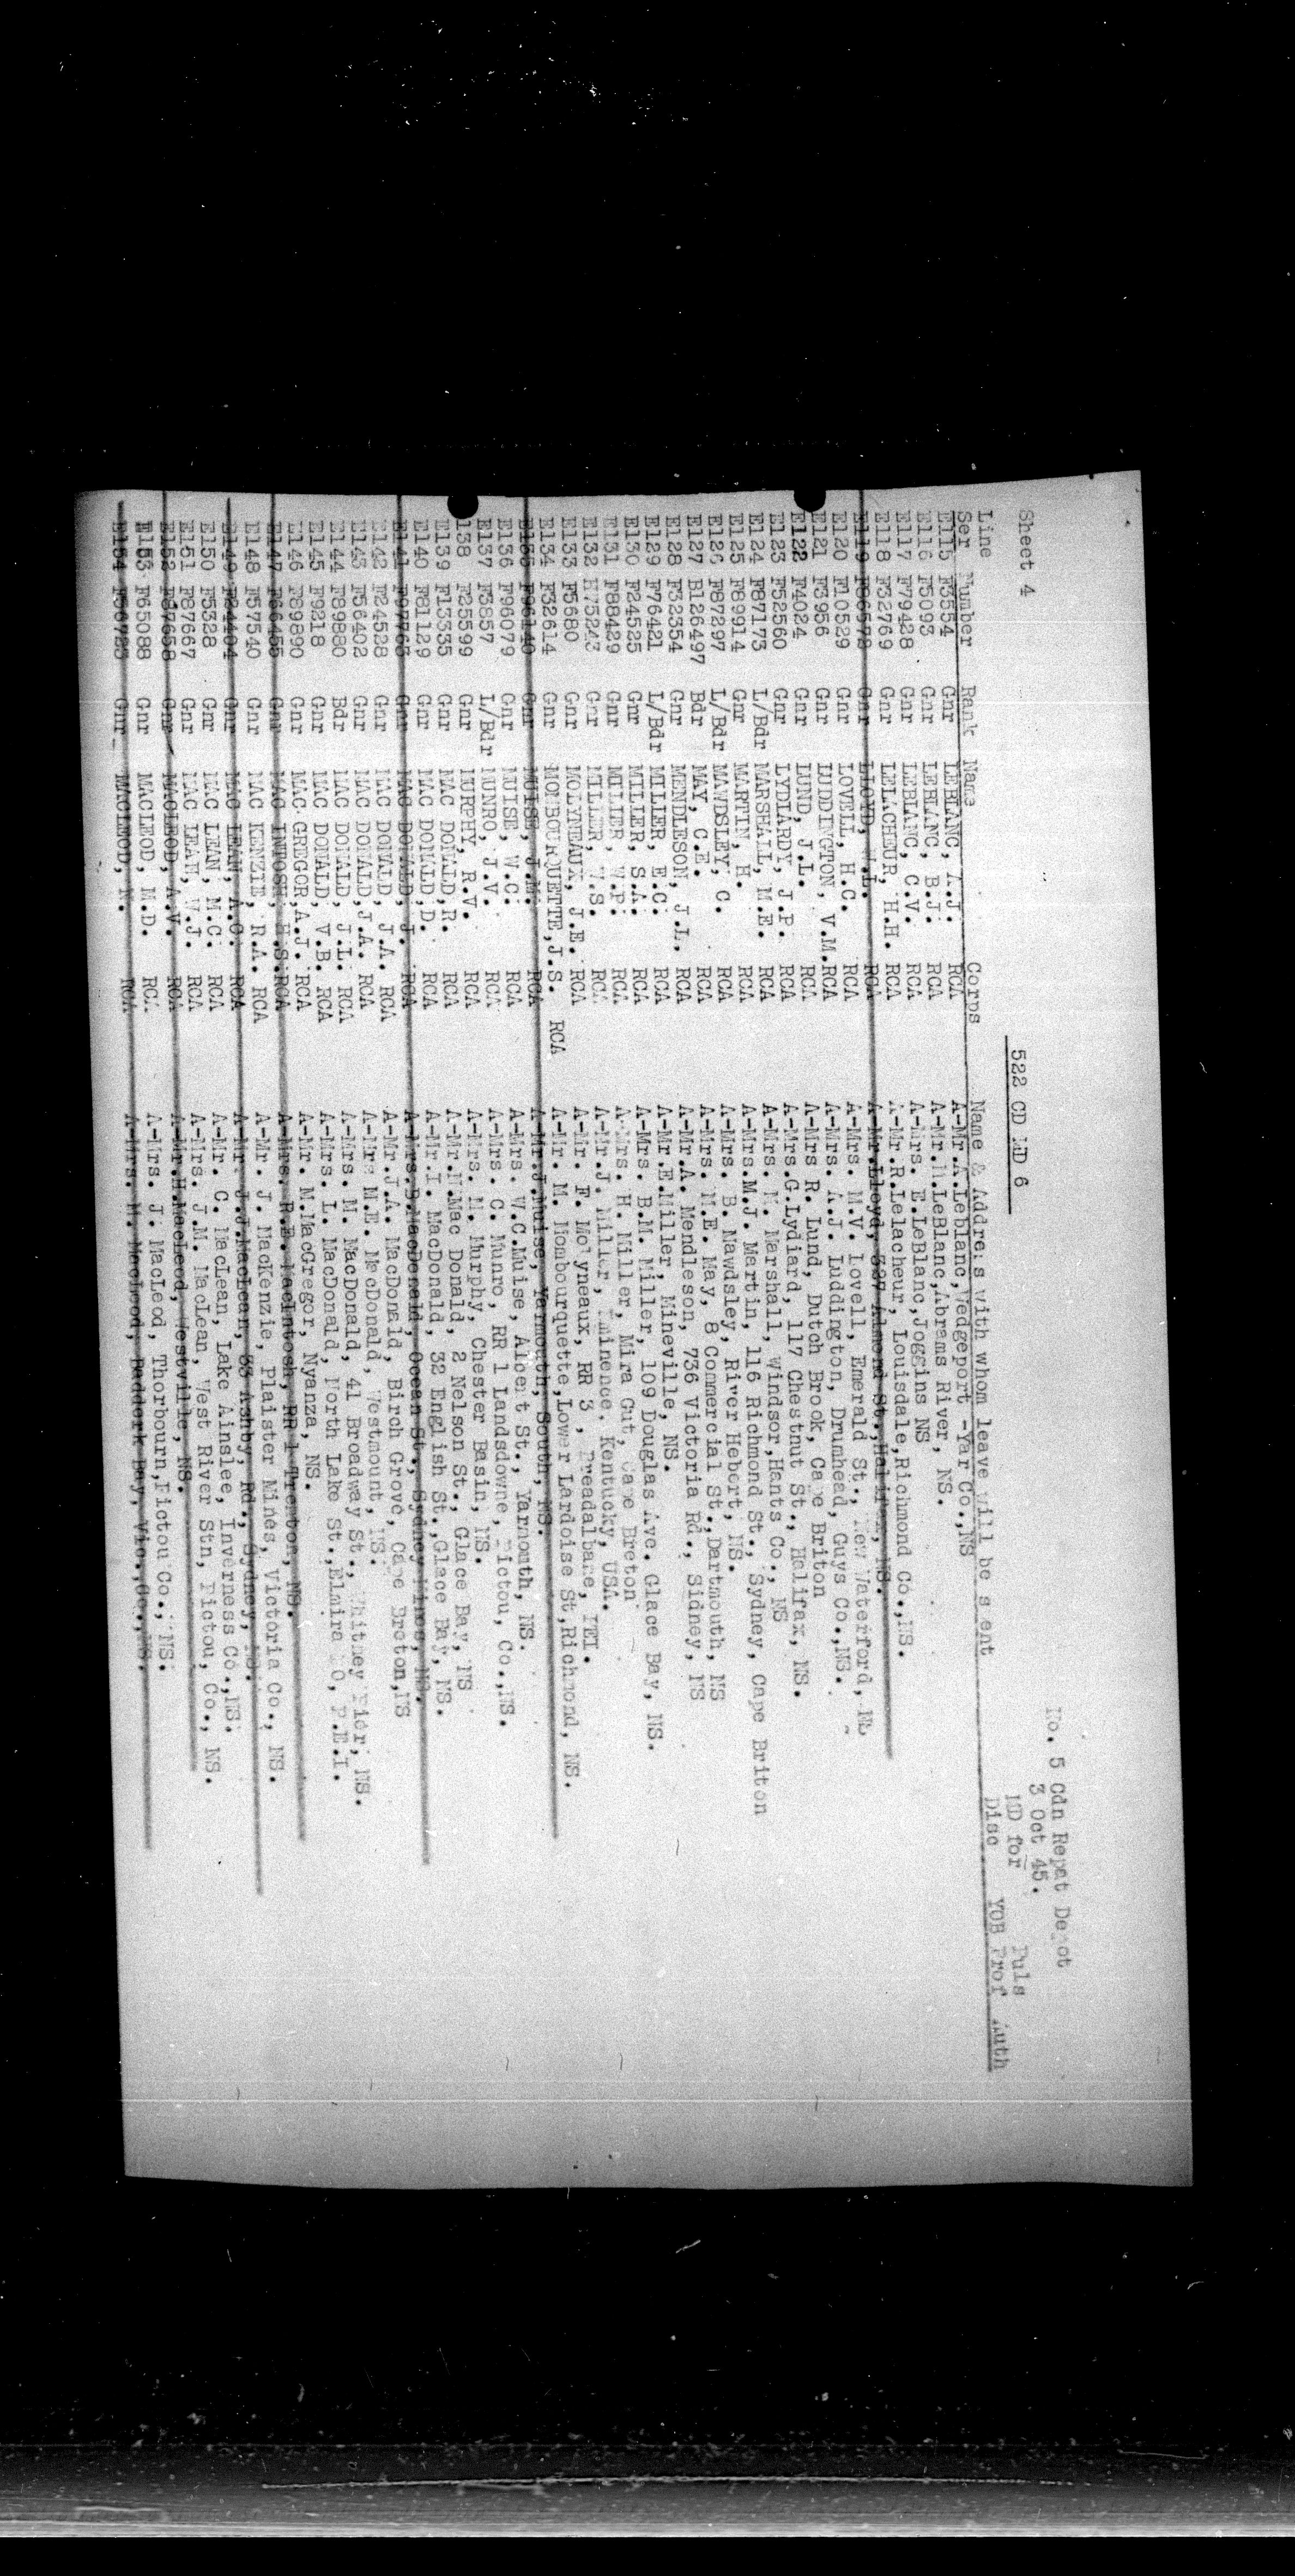 No. 5 Cdn Repat Depot
Sheet 4 522 CD MD 6 3 Oct 45.
MD for Puls
Line Name & Address with whom leave will be sent Disc YOB Prof Auth
Ser Number Rank Name Corps
E115 F3554 Gnr LEBLANC, A.J. RCA A-Mr.A.Leblanc,Wedgeport -Yar Co.,NS
E116 F5093 Gnr LEBLANC, B.J. RCA A-Mr.M.LeBlanc,Abrams River, NS.
E117 F79428 Gnr LEBLANC, C.V. RCA A-Mrs. E.LeBlanc,Joggins NS
E118 F32769 Gnr LELACHEUR, H.H. RCA A-Mr.R.Lelacheur, Louisdale,Richmond Co.,NS.
E119 Gnr LLOYD, W.L. RCA A-Mr.Lloyd, 327 Almond St.,Halifax, NS.
E120 F10529 Gnr LOVELL, H.C. RCA A-Mrs. M.V. Lovell, Emerald St., New Waterford,
E121 F3956 Gnr LUDDINGTON, V.M.RCA A-Mrs. A.J. Luddington, Drumhead, Guys Co.,NS.
E122 F4024 Gnr LUND, J.L. RCA A-Mrs R. Lund, Dutch Brook, Cape Briton
E123 F52560 Gnr LYDIARDY, J.P. RCA A-Mrs.G.Lydiard, 117 Chestnut St., Halifax, NS.
E124 F87173 L/Bdr MARSHALL, M.E. RCA A-Mrs. M. Marshall, Windsor,Hants Co., NS
E125 F89914 Gnr MARTIN, H. RCA A-Mrs.M.J. Martin, 116 Richmond St., Sydney, Cape Briton
E126 F87297 L/Bdr MAWDSLEY, C. RCA A-Mrs. B. Mawdsley, River Hebert, NS.
E127 B126497 Bdr MAY, C.E. RCA A-Mrs. M.E. May, 8 Commercial St.,Dartmouth, NS
E128 F32354 Gnr MENDLESON, J.L. RCA A-Mr.A. Mendleson, 736 Victoria Rd., Sidney, NS
E129 F76421 L/Bdr MILLER, E.C. RCA A-Mr.E.Miller, Mineville, NS.
E130 F24525 Gnr MILLER, S.A. RCA A-Mrs. B.M. Miller, 109 Douglas Ave. Glace Bay, NS.
E131 F88429 Gnr MILLER, W.P. RCA A-Mrs. H. Miller, Mira Gut, Cape Breton
E132 H75243 Gnr MILLER, W.S. RCA A-Mr.J. Miller, Eminence, Kentucky, USA.
E133 F5680 Gnr MOLYNEAUX, J.E. RCA A-Mr. F. Molyneaux, RR 3, Breadalbane, PEI.
E134 F32614 Gnr MOMBOURQUETTE,J.S. RCA A-Mr. M. Mombourquette,Lower Lardoise St,Richmond, NS.
E135 F96140 Gnr MUISE, J.M. RCA A-Mr.J.Muise, Yarmouth, South, NS.
E136 F96079 Gnr MUISE, W.C. RCA A-Mrs. W.C.Muise, Albert St., Yarmouth, NS.
E137 F3857 L/Bdr MUNRO, J.V. RCA A-Mrs. C. Munro, RR 1 Landsdowne, Pictou, Co.,NS.
E138 F25599 Gnr MURPHY, R.V. RCA A-Mrs. M. Murphy, Chester Basin, NS.
E139 F13335 Gnr MAC DONALD,R. RCA A-Mr.N.Mac Donald, 2 Nelson St., Glace Bay, NS
E140 F81129 Gnr MAC DONALD,D. RCA A-Mr.I. MacDonald, 32 English St.,Glace Bay, NS.
E141 F97763 Gnr MAC DONALD, J. RCA A-Mrs.B.MacDonald, Ocean St., Sydney Mines, NS.
E142 F24528 Gnr MAC DONALD, J.A. RCA A-Mr.J.A. MacDonald, Birch Grove, Cape Breton,NS
E143 F56402 Gnr MAC DONALD,J.A. RCA A-Mrs M.E. McDonald, Westmount, NS.
E144 F89880 Bdr MAC DONALD, J.L. RCA A-Mrs. M. MacDonald, 41 Broadway St., Whitney Pier, NS.
E145 F9218 Gnr MAC DONALD, V.B. RCA A-Mrs. L. MacDonald, North Lake St.,Elmira PO, P.E.I.
E146 F89890 Gnr MAC GREGOR,A.J. RCA A-Mr. M.MacGregor, Nyanza, NS.
E147 Gnr MAC INTOSH, H.S.RCA A-Mrs. R.E. MacIntosh, RR 1 Trenton, NS.
E148 F57540 Gnr MAC KENZIE, R.A. RCA A-Mr. J. MacKenzie, Plaister Mines, Victoria Co., NS.
E149 F24404 Gnr MAC LEAN, A.C. RCA A-Mr. J.J.MacLean, 33 Ashby, Rd., Sydney, NS.
E150 F5328 Gnr MAC LEAN, M.C. RCA A-Mr. C. MacLean, Lake Ainslee, Inverness Co.,NS.
E151 F87667 Gnr MAC LEAN, W.J. RCA A-Mrs. J.M. MacLean, West River Stn, Pictou, Co., NS.
E152 F87658 Gnr MACLEOD, A.V. RCA A-Mr.H.MacLeod, Westville, NS.
E153 F65088 Gnr MACLEOD, M.D. RCA A-Mrs. J. MacLeod, Thorbourn,Pictou Co., NS.
E154 F56723 Gnr MACLEOD, N. RCA A-Mrs. M. MacLeod, Baddeck Bay, Vic.,Co.,NS.